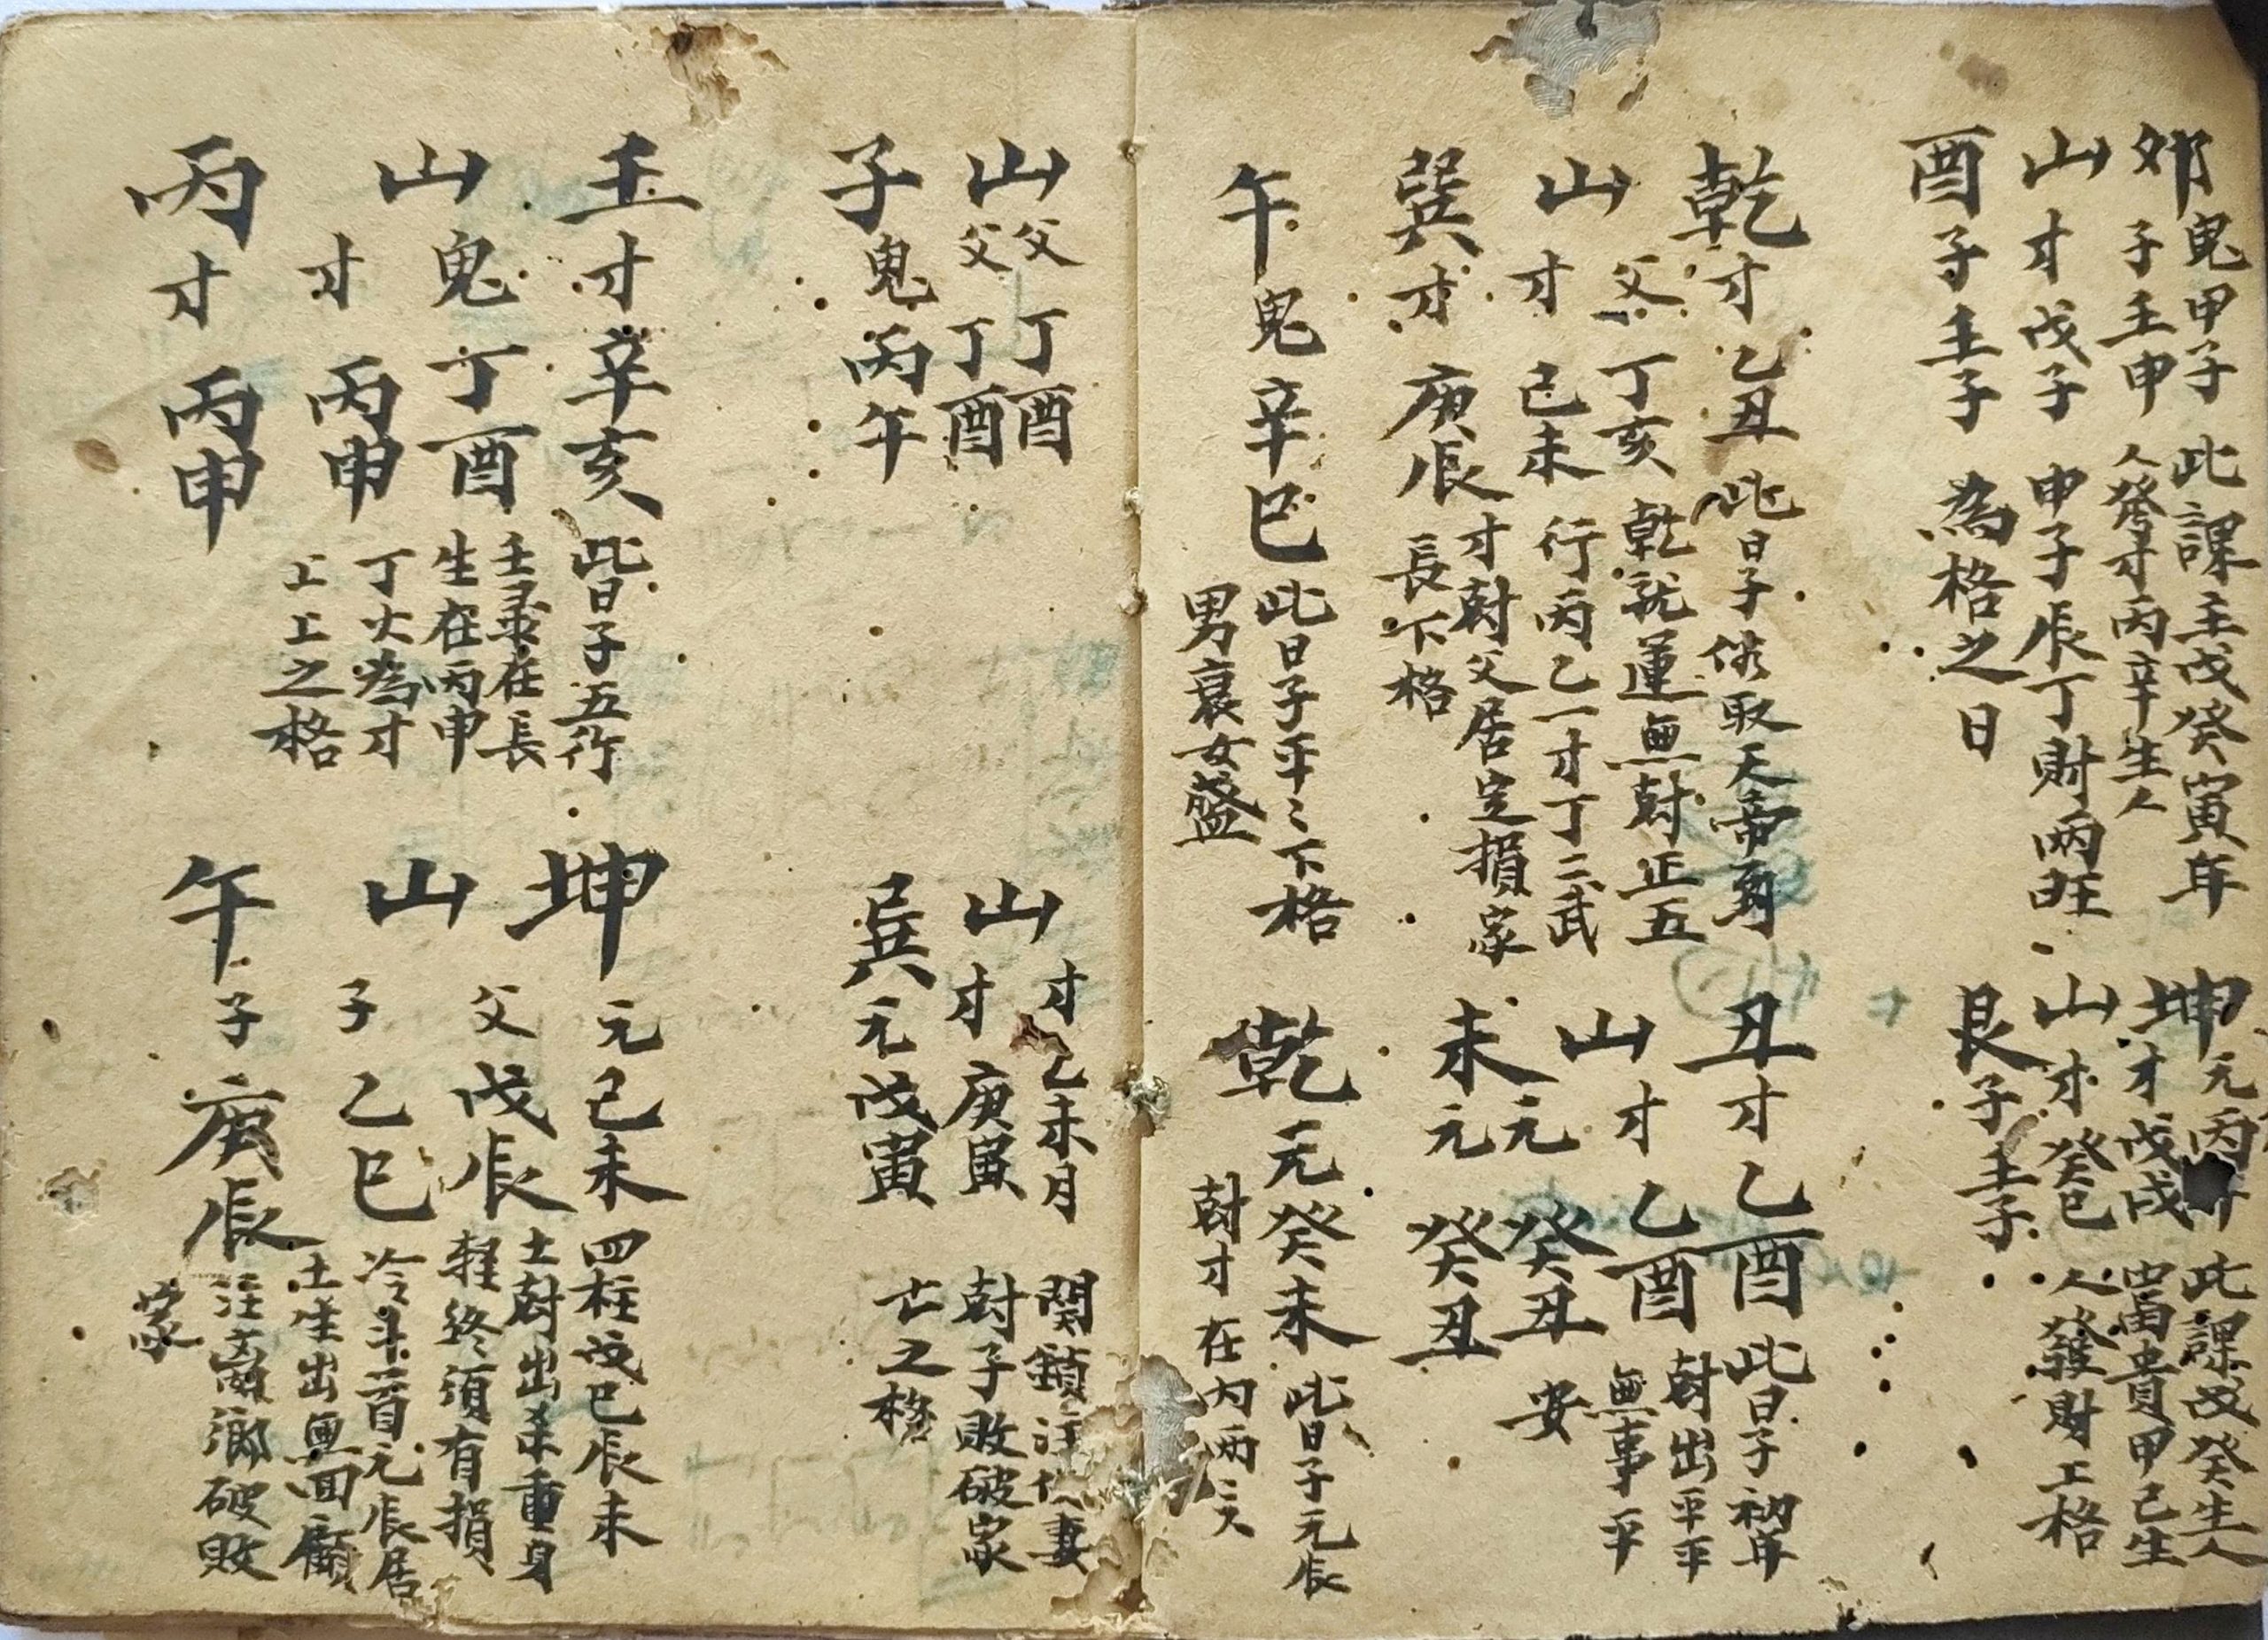 卯鬼甲子 此課主戊癸寅年
子壬申 人發才丙辛生人
山才戊子 申子辰丁財兩旺
酉子壬子 為格之日
坤元丙 此課戊癸生人
才戊戌 富貴甲己生
山才癸巳 人發財上格
艮子壬子
乾才乙丑 此日子俗取天帝到
父丁亥 乾就運無尅正五
山才己未 行丙乙一才丁二武
才尅父居定損家
巽才庚辰 長下格
午鬼辛巳 此日子平〻下格
男衰女盛
丑才乙酉 此日子初年
尅出平平
山才乙酉 無事平
元癸丑 安
未元癸丑
乾元癸未 此日子元辰
尅才在内兩三
山父丁酉
父丁酉
子鬼丙午
才乙未月 関鎖 妻
山才庚寅 尅子敗破家
巽元戊寅 亡之格
壬才辛亥 皆日子五行
壬录在長
山鬼丁酉 生在丙申
丁火為才
才丙申 上上之格
丙才丙申
坤元己未 四柱戊巳辰未
土尅出杀重身
父戊辰 軽終須有損
山子乙巳 冷斗首元辰居
土生出無回顧
午子庚辰 破敗
家